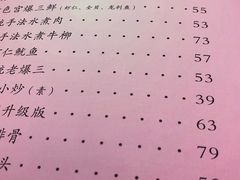 色宫爆三鲜(虾仁、全贝、龙利鱼) 55
统手法水煮肉 53
手法水煮牛柳 73
仁鱿鱼 57
统老爆三 53
小炒(素) 39
升级版 63
排骨 79
头